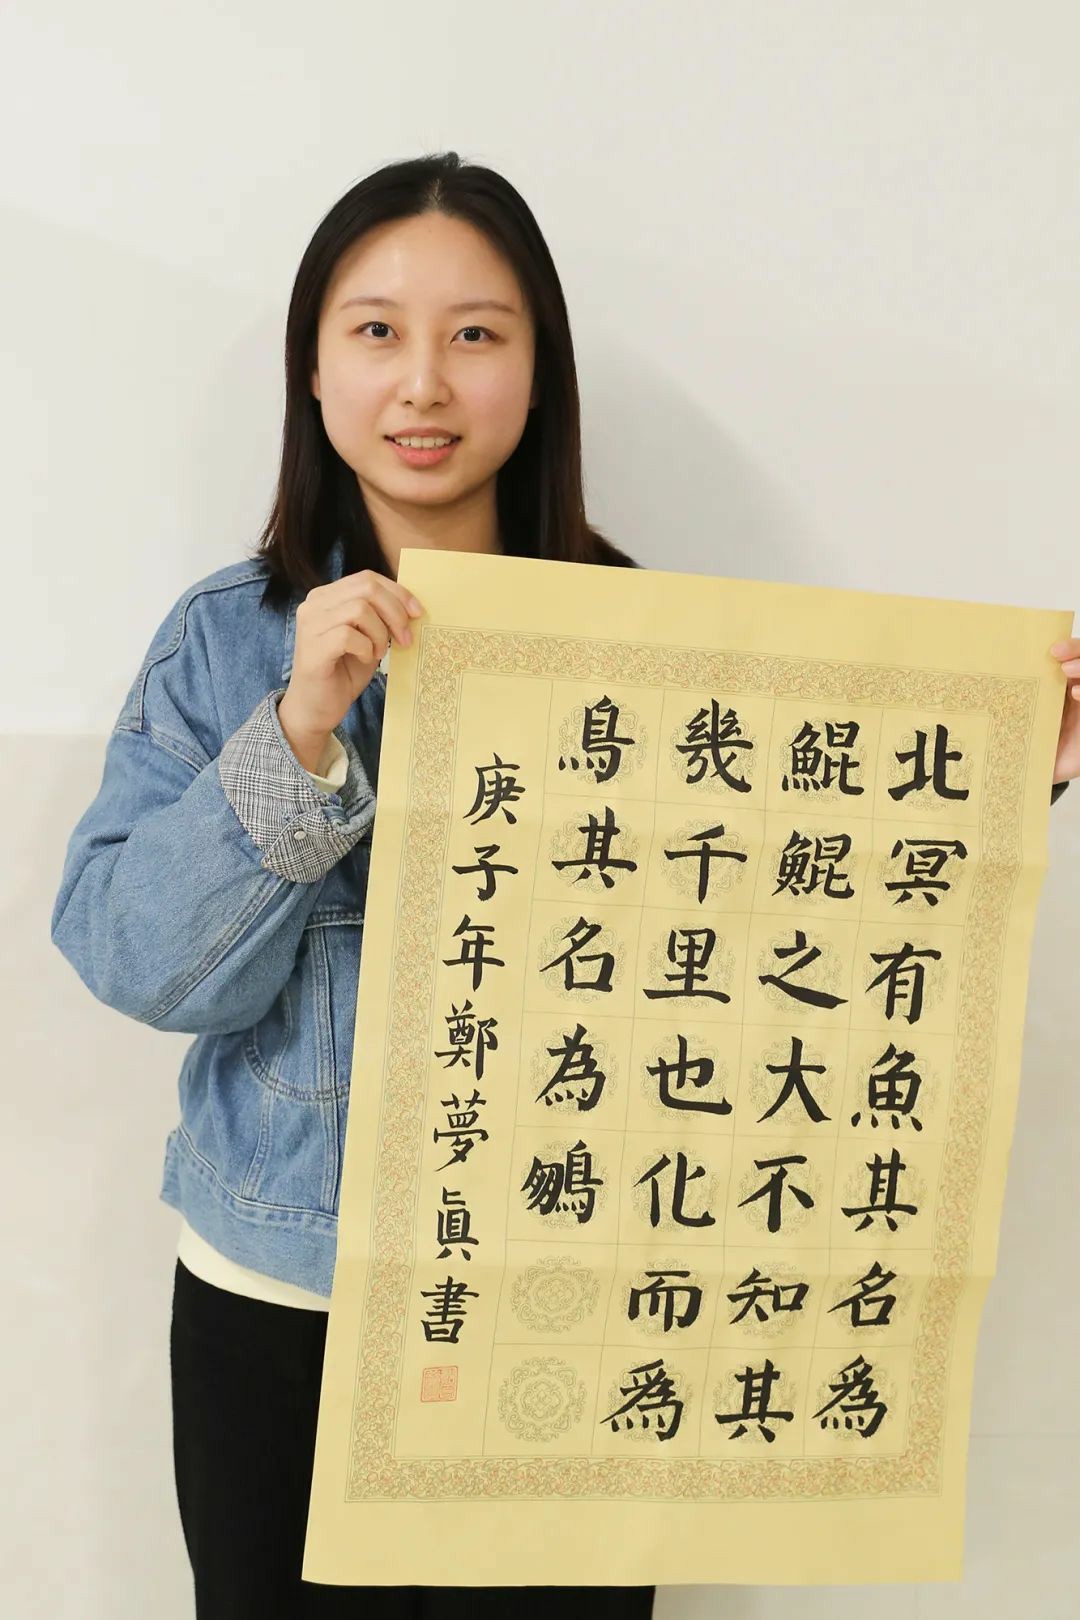 北冥有魚其名為
鯤鯤之大不知其
幾千里也化而為
鳥其名為鵬
庚子年鄭夢眞書